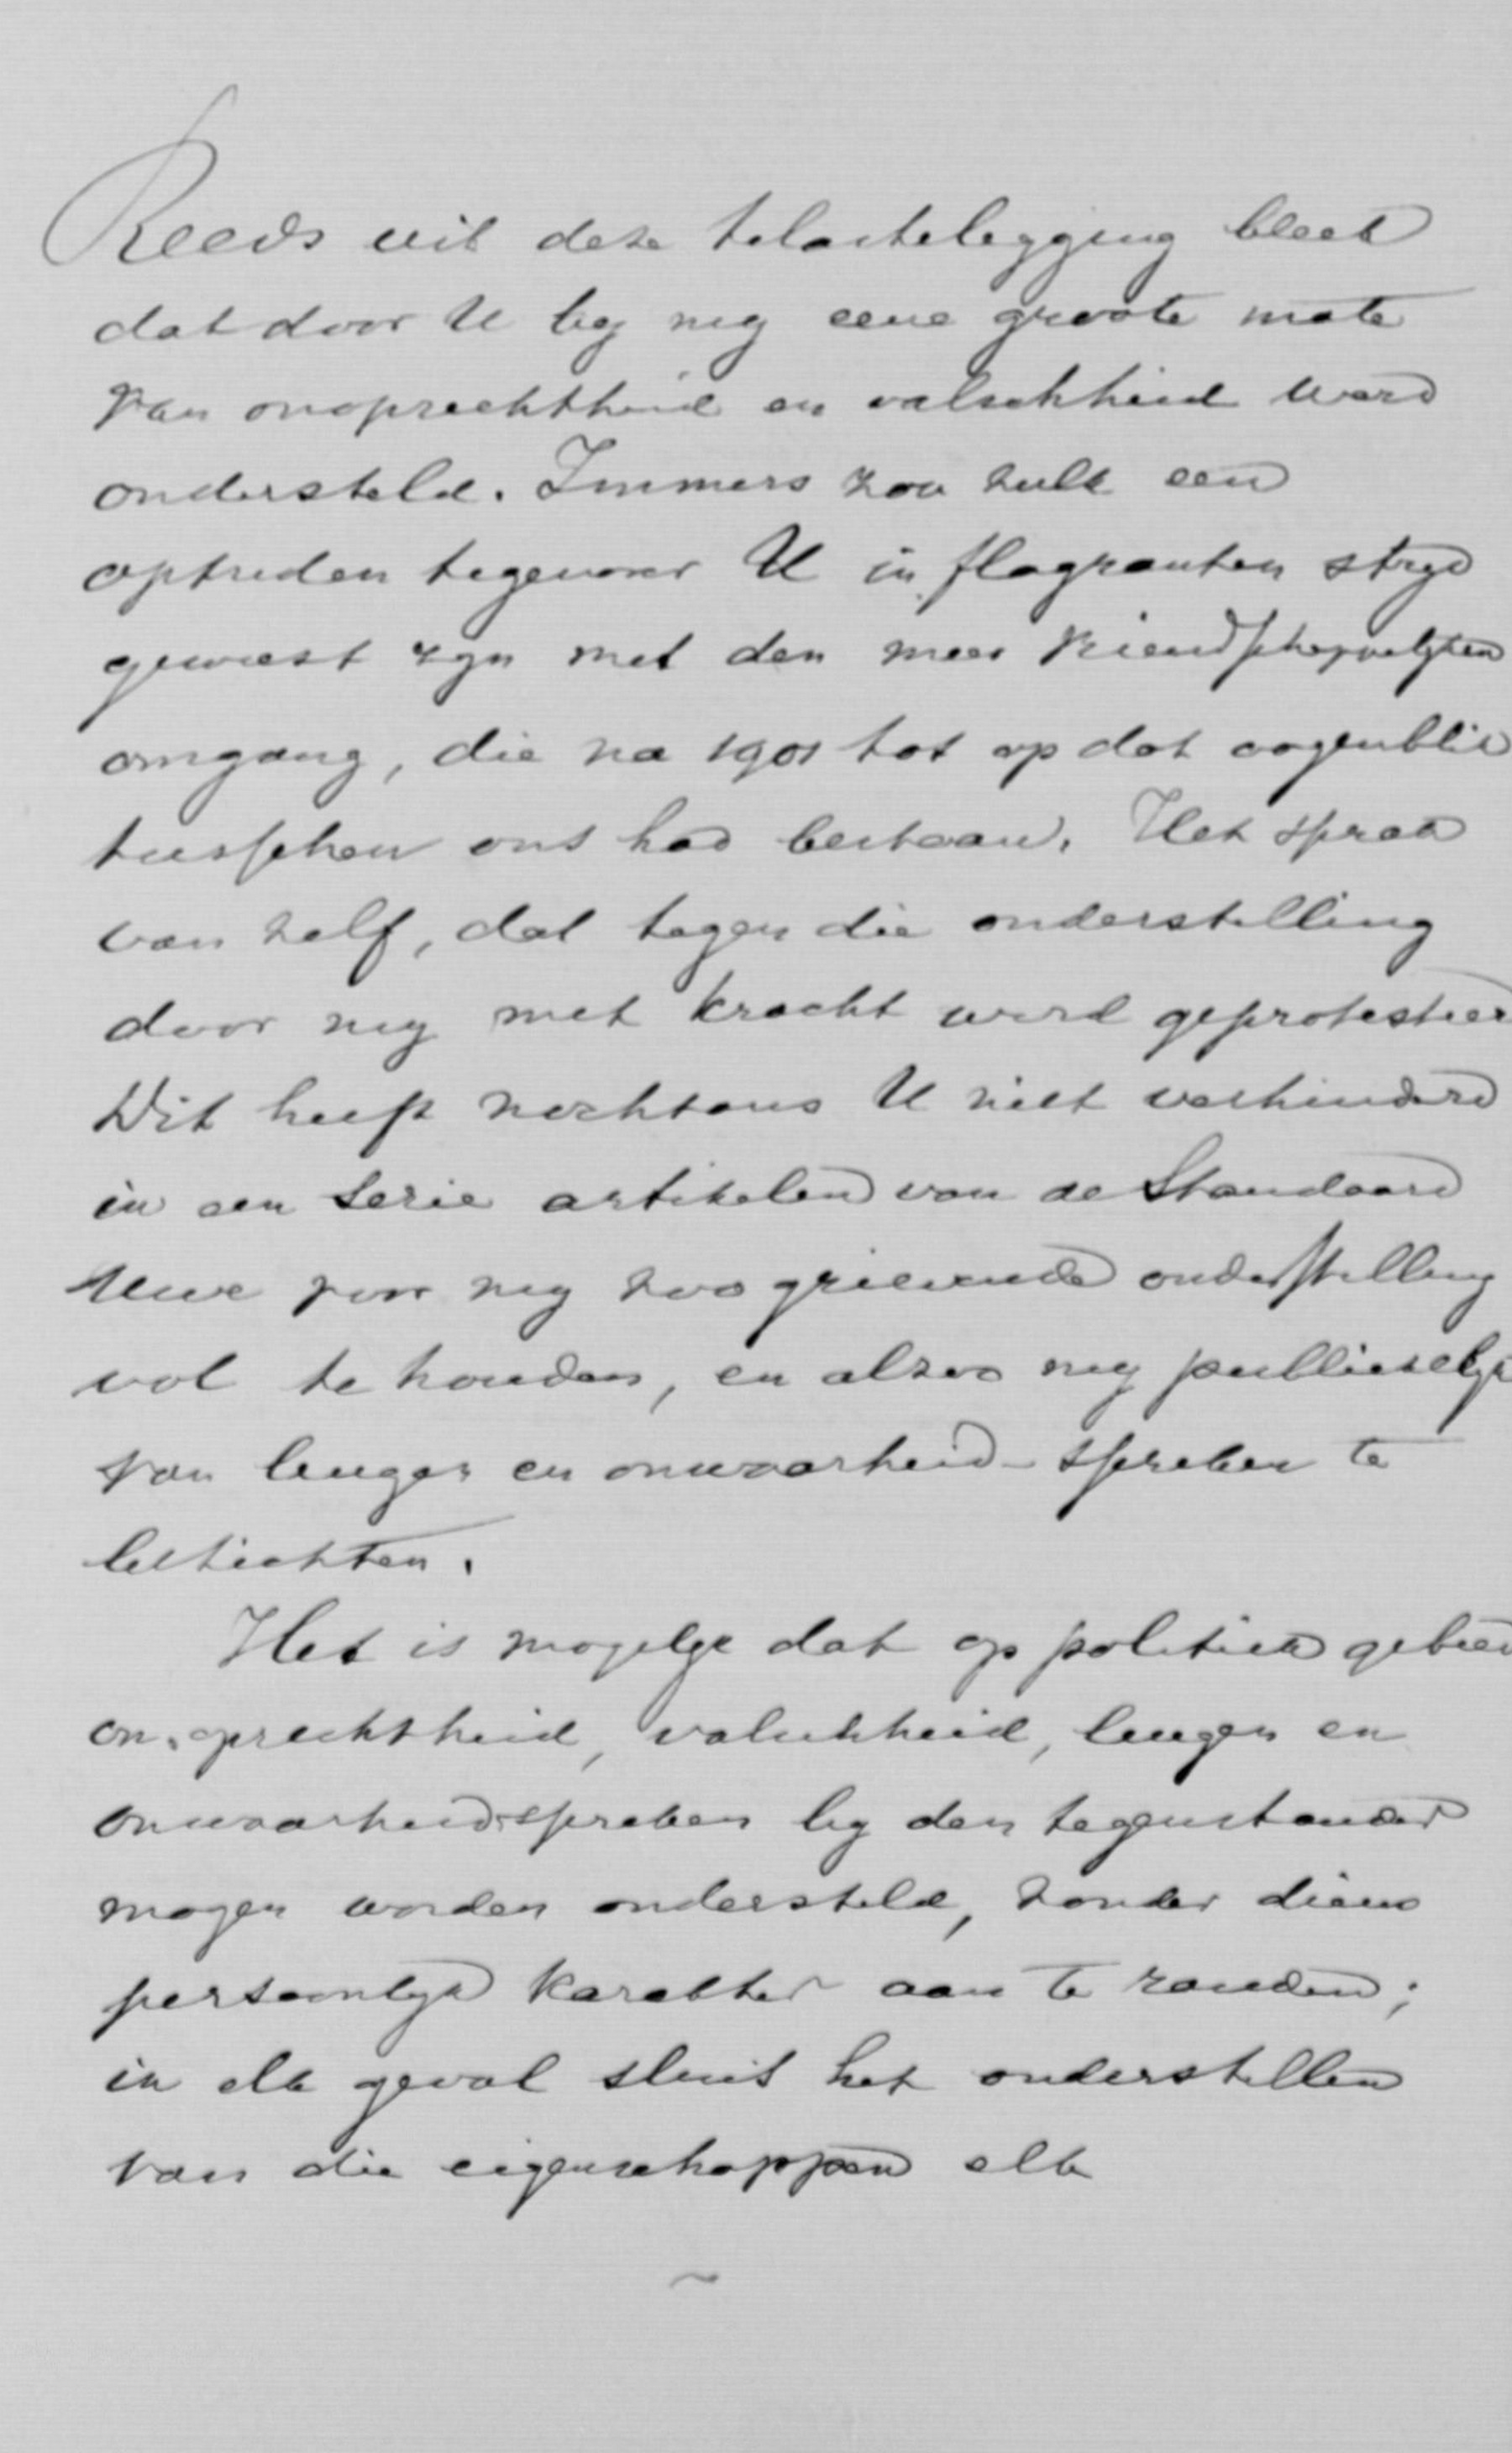 Reeds uit deze telastelegging bleek
dat door U bij mij eene groote mate
van onoprechtheid en valschheid werd
ondersteld. Immers zou zulk een
optreden tegenover U in flagranten strijd
geweest zijn met den meer vriendschappelijken
omgang, die na 1901 tot op dat oogenblik
tusschen ons had bestaan. Het sprak
van zelf, dat tegen die onderstelling
door mij met kracht werd geprotesteerd
Dit heeft nochtans U niet verhinderd
in een serie artikelen van de Standaard
Uwe voor mij zoo grievende onderstelling
vol te houden, en alzoo mij publiekelijk
van leugen en onwaarheid-spreken te
betichten.
Het is mogelijk dat op politiek gebied
onoprechtheid, valschheid, leugen en
onwaarheid-spreken bij den tegenstander
mogen worden ondersteld, zonder diens
persoonlijk karakter aan te randen;
in elk geval sluit het onderstellen
van die eigenschappen elk